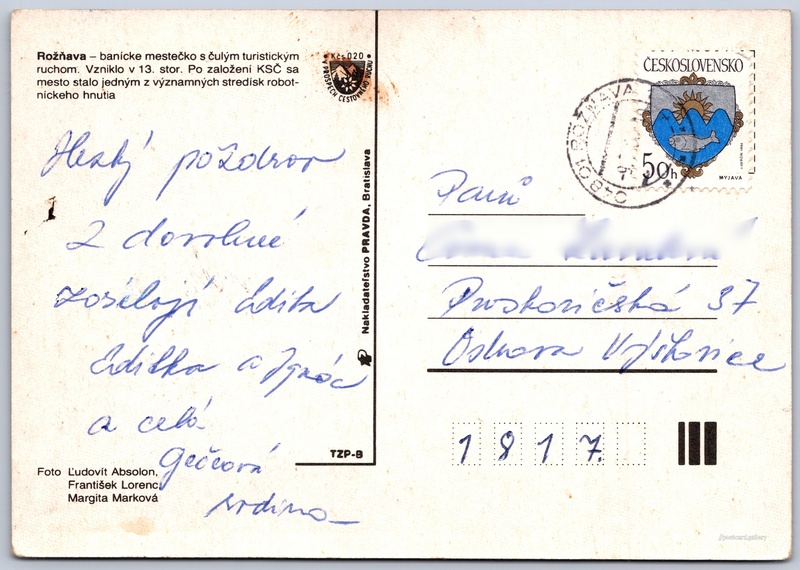 Rožňava – banícke mestečko s čulým turistickým
ruchom. Vzniklo v 13. stor. Po založení KSČ sa
mesto stalo jedným z významných stredísk robot-
níckeho hnutia
Kčs 020
V PROSPECH CESTOVNÉHO RUCHU
Hezký pozdrav
z dovolené
zasílají Edita
Editka a Ignác
a celá
Gečeová
rodina
Foto Ľudovít Absolon,
František Lorenc,
Margita Marková
Nakladateľstvo PRAVDA, Bratislava
TZP-B
ČESKOSLOVENSKO
50h
MYJAVA
048 01 ROŽŇAVA
Paní
37
Ostrava Výškovice
1817